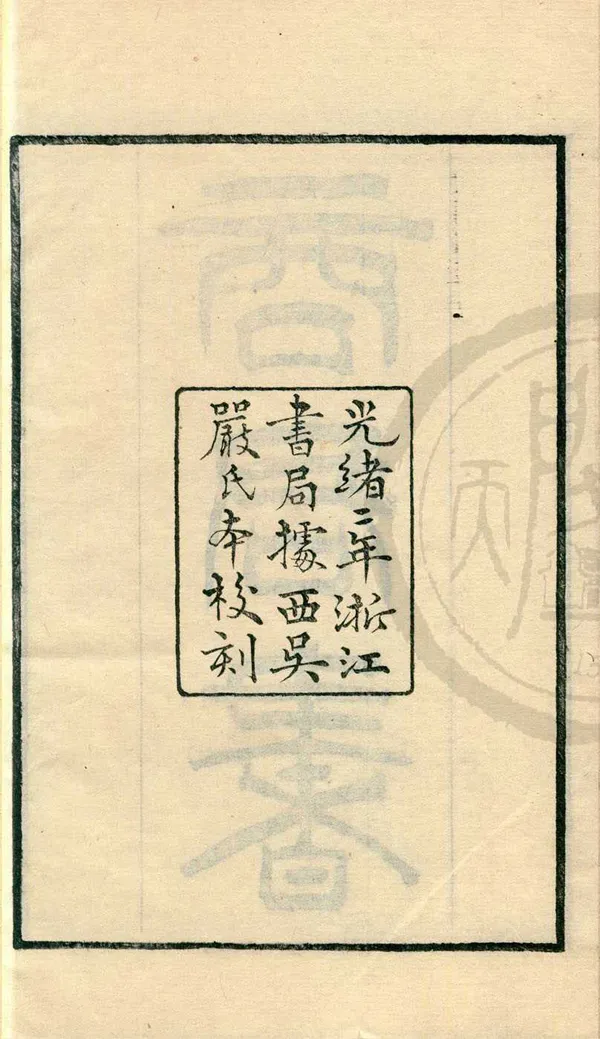 光緒二年浙江
書局據西吳
嚴氏本校刻